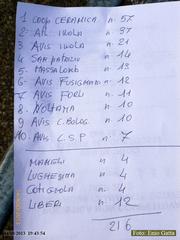 1 COOP CERAMICA n. 57
2 AVL IMOLA n 37
3 AVIS IMOLA n. 21
4 SAN PATRIZIO n 14
5 MASSALOMB. n 13
6 AVIS FUSIGNANO n. 12
7 AVIS FORLI n 11
8 VOLTANA n 10
9 AVIS C. BOLOG. n 10
10 AVIS C.S.P n 7
MAMELI n 4
LUGHESINA n. 4
COTIGNOLA n. 4
LIBERI n 12
216
2013 19:43:54
Foto: Enzo Gatta